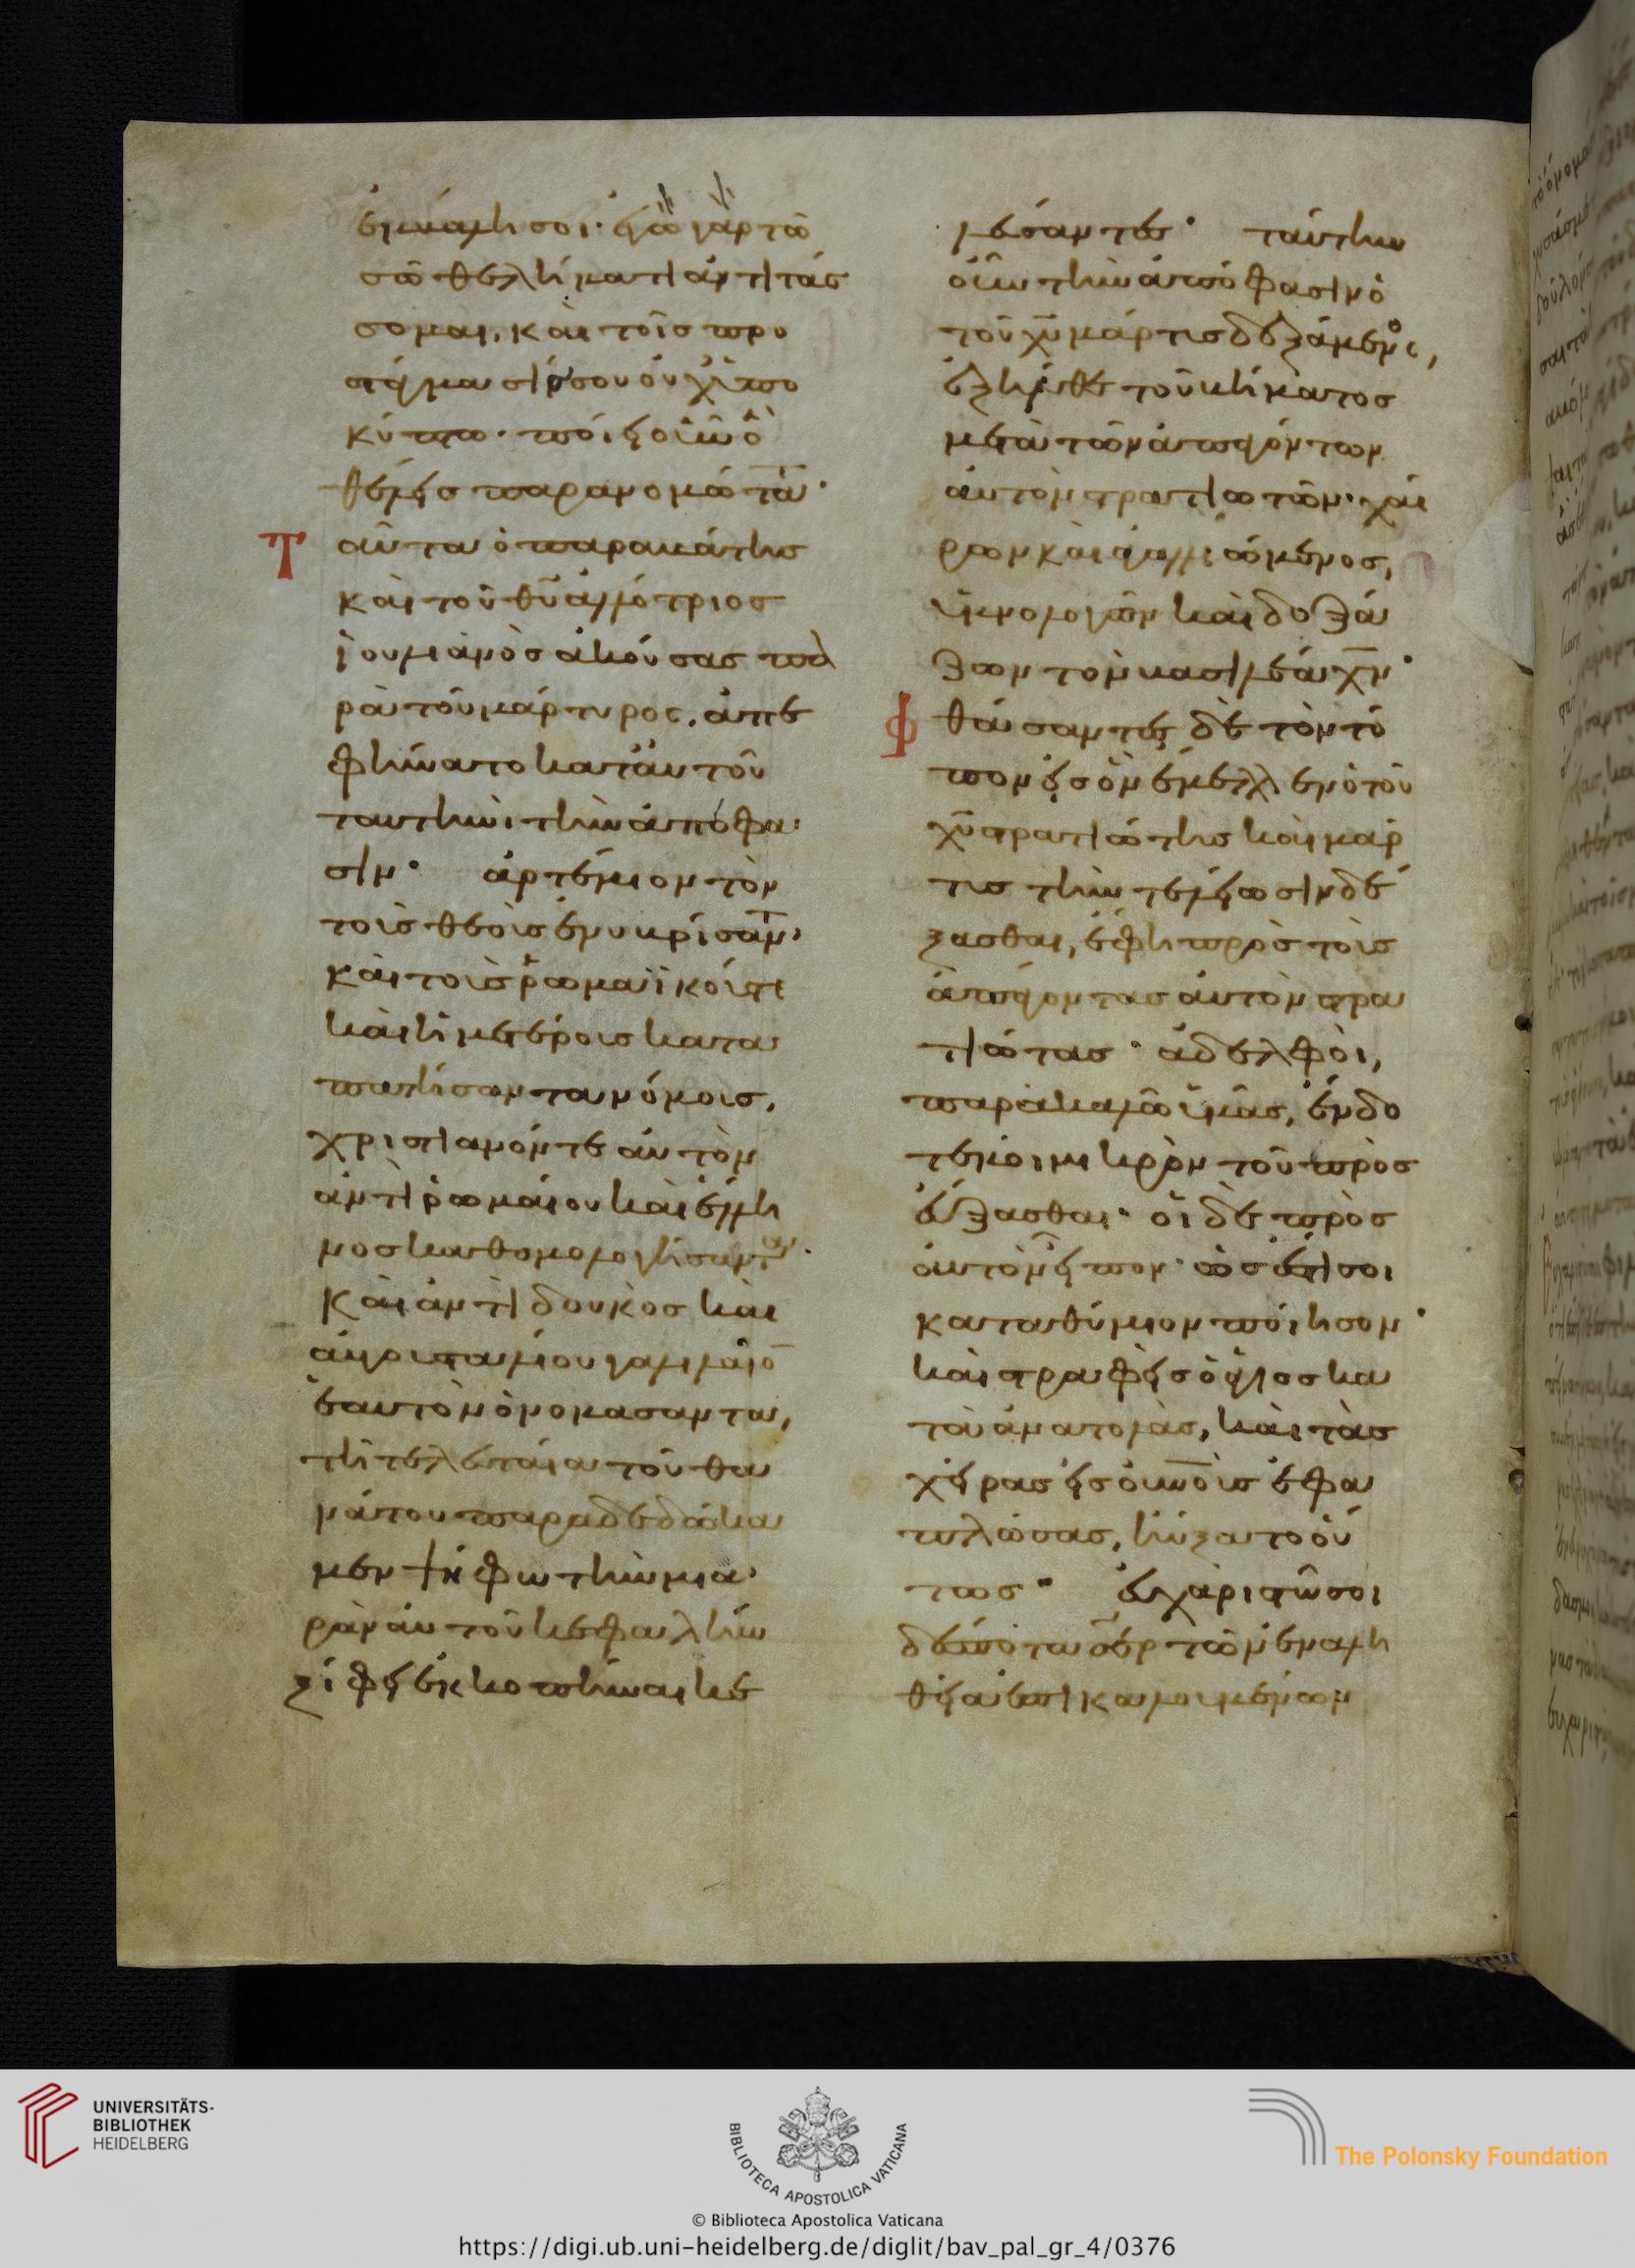 ἐνναλησοι· ἐγὼ γὰρ τῶ
σῶ θελήματι ἀντιτάσ
σομαι, και τοῖς προ
στάγμασίν σου οὐχ ὑπο
κύπτω· ποίει οὖν ὃ
θέλεις παρανομώτα̅·
Ταῦτα ὁ παραβάτης
καὶ τοῦ θ̅υ̅ ἀλλότριος
ἰουλιανὸς ἀκούσας πα
ρὰ τοῦ μάρτυρος, ἀπε
φήνατο κατ' αὐτοῦ
ταύτην τὴν ἀπόφα
σιν· ἀρτέμιον τὸν
τοὶς θεοὶς ἐνυβρίσαν̅
καὶ τοὶς ῥωμαϊκοίς τε
καὶ ἡμετέροις κατα
πατήσαντα νόμοις,
χριστιανόν τε αὐτὸν
ἀντὶ ῥωμαίου καὶ ἕλλη
νος καθομολογήσαντα·
Καὶ ἀντὶ δουκὸς καὶ
ἀυγουσταλίου γαλιλαῖο̅
ἑαυτὸν ὀνομασαντα,
τῆ τελευταία τοῦ θα
νάτου παραδεδώκα
μεν ψήφω τὴν μια
ρὰν αὐτοῦ κεφαλὴν
ξίφει ἐκκοπῆναι κε
λεύσαντες· ταύτην
οὖν τὴν ἀπόφασιν ὁ
τοῦ χ̅υ̅ μάρτις δεξάμενος,
ἐξῆλθε τοῦ βήματος
μετὰ τῶν ἀπαγόντων
αὐτὸν στρατιωτῶν· χαί
ρων καὶ ἀγαλλιώμενος,
ὑμνολογῶν καὶ δοξά
ζων τὸν βασιλέα χ̅ν̅·
Φθάσαντες δὲ τὸν τό
πον εἰς ὃν ἔμελλεν ὁ τοῦ
χ̅υ̅ στρατιώτης καὶ μάρ
τις τὴν τελείωσιν δέ
ξασθαι, ἔφη πρὸς τοὶς
ἀπάγοντας αὐτὸν στρα
τιώτας· ἀδελφοὶ,
παρακαλῶ ὑμᾶς, ἔνδο
τέ μοι μικρὸν τοῦ προς
εύξασθαι· οἱ δὲ πρὸς
αὐτὸν εἶπον· ὡς ἔστι σοι
καταθύμιον ποίησον·
καὶ στραφεὶς ὁ ἅγιος κα
τὰ ἀνατολὰς, καὶ τὰς
χεῖρας εἰς οὐ̅νοὺς ἐφα
πλώσας, ηὔξατο οὕ
τως· εὐχαριστῶ σοι
δέσποτα